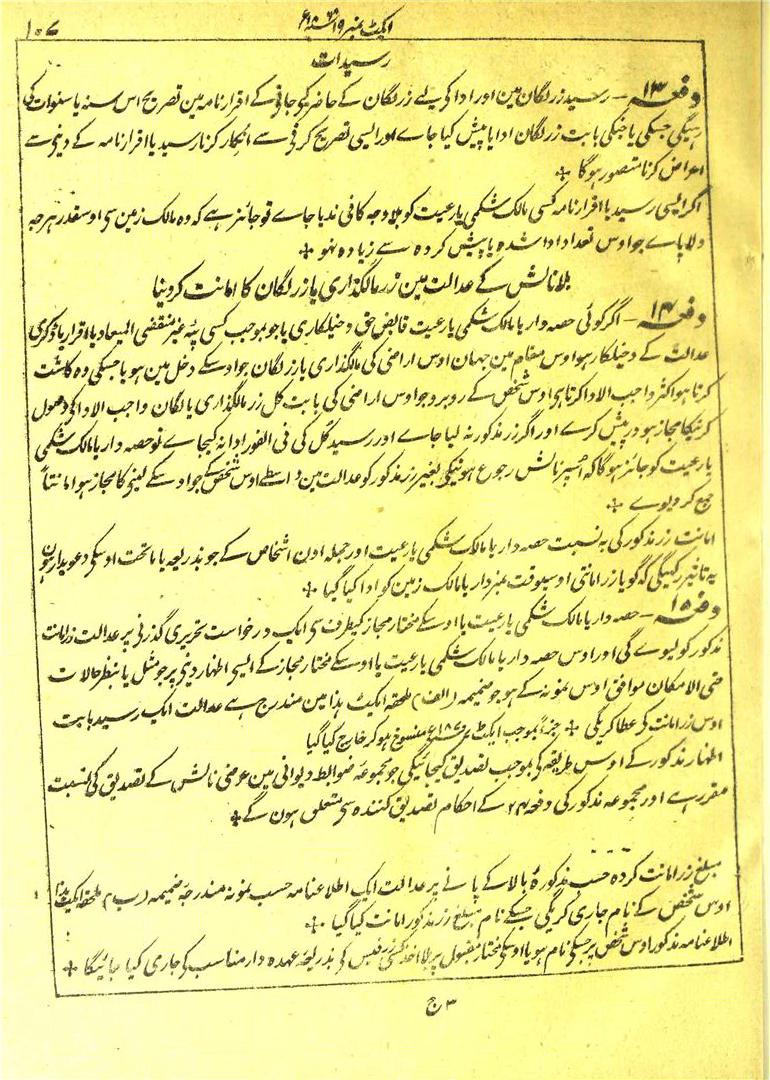 ایکٹ نمبر ۱۹ سنہ ۱۸۶۸ع
۱۰۷
رسیدات
دفعہ ۱۳ - رسید زر لگان مین اور ادا کی یا لئے زر لگان کے حاضر کیے جانے کے اقرارنامہ مین تصریح اس سنہ یا سنوات کی
رہیگی جسکی یا جنکی بابت زر لگان ادا یا پیش کیا جاے اور ایسی تصریح کرنے سے انکار کرنا رسید یا اقرارنامہ کے دینے سے
اعراض کرنا متصور ہوگا ÷
اگر ایسی رسید یا اقرارنامہ کسی مالک شکمی یا رعیت کو بلا وجہ کافی ندیا جاے تو جائز ہے کہ وہ مالک زمین سے اوسقدر ہرجہ
دلا پاے جو اوس تعداد ادا شدہ یا پیش کردہ سے زیادہ نہو ÷
بلا نالش کے عدالت مین زر مالگذاری یا زر لگان کا امانت کر دینا
دفعہ ۱۴ - اگر کوئی حصہ دار یا مالک شکمی یا رعیت قابض حق دخیلکاری یا جو بموجب کسی پٹہ غیر منقضی المیعاد یا اقرار یا ڈکری
عدالت کے دخیلکار ہو اوس مقام مین جہان اوس اراضی کی مالگذاری یا زر لگان جو اوسکے دخل مین ہو یا جسکی وہ کاشت
کرتا ہو اکثر واجب الادا کرتا ہے اوس شخص کے روبرو جو اوس اراضی کی بابت کل زر مالگذاری یا لگان واجب الادا کے وصول
کرنیکا مجاز ہو پیش کرے اور اگر زر مذکور نہ لیا جاے اور رسید کل کی فی الفور ادا نہ کیجاے تو حصہ دار یا مالک شکمی
یا رعیت کو جائز ہوگا کہ اسپر نالش رجوع ہونیکے بغیر زر مذکور کو عدالت مین واسطے اوس شخص کے جو اوسکے لینے کا مجاز ہو امانتاً
جمع کر دیوے ÷
امانت زر مذکور کی بہ نسبت حصہ دار یا مالک شکمی یا رعیت اور جملہ اون اشخاص کے جو بذریعہ یا ماتحت اوسکے دعویدار ہون
یہ تاثیر رکھیگی کہ گویا زر امانتی اوسیوقت نمبردار یا مالک زمین کو ادا کیا گیا ÷
دفعہ ۱۵ - حصہ دار یا مالک شکمی یا رعیت یا اوسکے مختار مجاز کیطرف سے ایک درخواست تحریری گذرنے پر عدالت زر امانت
مذکور کو لیوے گی اور اوس حصہ دار یا مالک شکمی یا رعیت یا اوسکے مختار مجاز کے ایسی اظہار دینے پر جو مثل یا بنظر حالات
حتی الامکان موافق اوس نمونہ کے ہو جو ضمیمہ (الف) ملحقہ ایکٹ ہذا مین مندرج ہے عدالت ایک رسید بابت
اوس زر امانت کی عطا کریگی ÷ جزءاً بموجب ایکٹ منسوخ ہو کر خارج کیا گیا
اظہار مذکور کے اوس طریقہ کے بموجب تصدیق کیجائیگی جو مجموعہ ضوابط دیوانی مین عرضی نالش کے تصدیق کی نسبت
مقرر ہے اور مجموعہ مذکور کی دفعہ ۲۴ کے احکام تصدیق کنندہ سے متعلق ہون گے ÷
مبلغ زر امانت کردہ حسب مذکورہ بالا کے پانے پر عدالت ایک اطلاعنامہ حسب نمونہ مندرجہ ضمیمہ (ب) ملحقہ ایکٹ ہذا
اوس شخص کے نام جاری کریگی جسکے نام مبلغ زر مذکور امانت کیا گیا ÷
اطلاعنامہ مذکور اوس شخص پر جسکے نام ہو یا اوسکے مختار مقبول پر بلا اخذ کسی فیس کے بذریعہ عہدہ دار مناسب کے جاری کیا جائیگا ÷
۳ ج